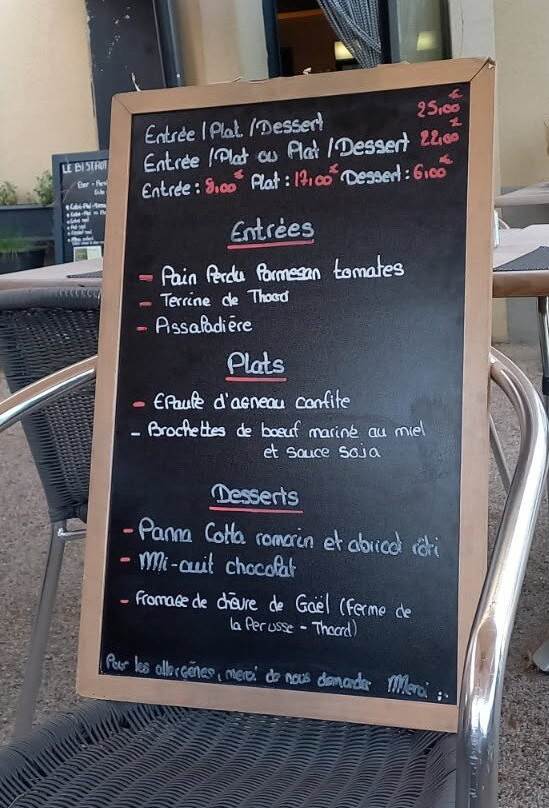 Entrée / Plat / Dessert 25,00€
Entrée / Plat ou Plat / Dessert 22,00€
Entrée : 8,00€ Plat : 17,00€ Dessert : 6,00€
Entrées
- Pain Perdu Parmesan tomates
- Terrine de Thoard
- Pissaladière
Plats
- Epaule d'agneau confite
- Brochettes de boeuf mariné au miel
et sauce soja
Desserts
- Panna Cotta romarin et abricot rôti
- Mi-cuit chocolat
- Fromage de chèvre de Gaël (Ferme de
la Perusse - Thoard)
Pour les allergènes, merci de nous demander Merci :)
LE BISTROT
Bar -